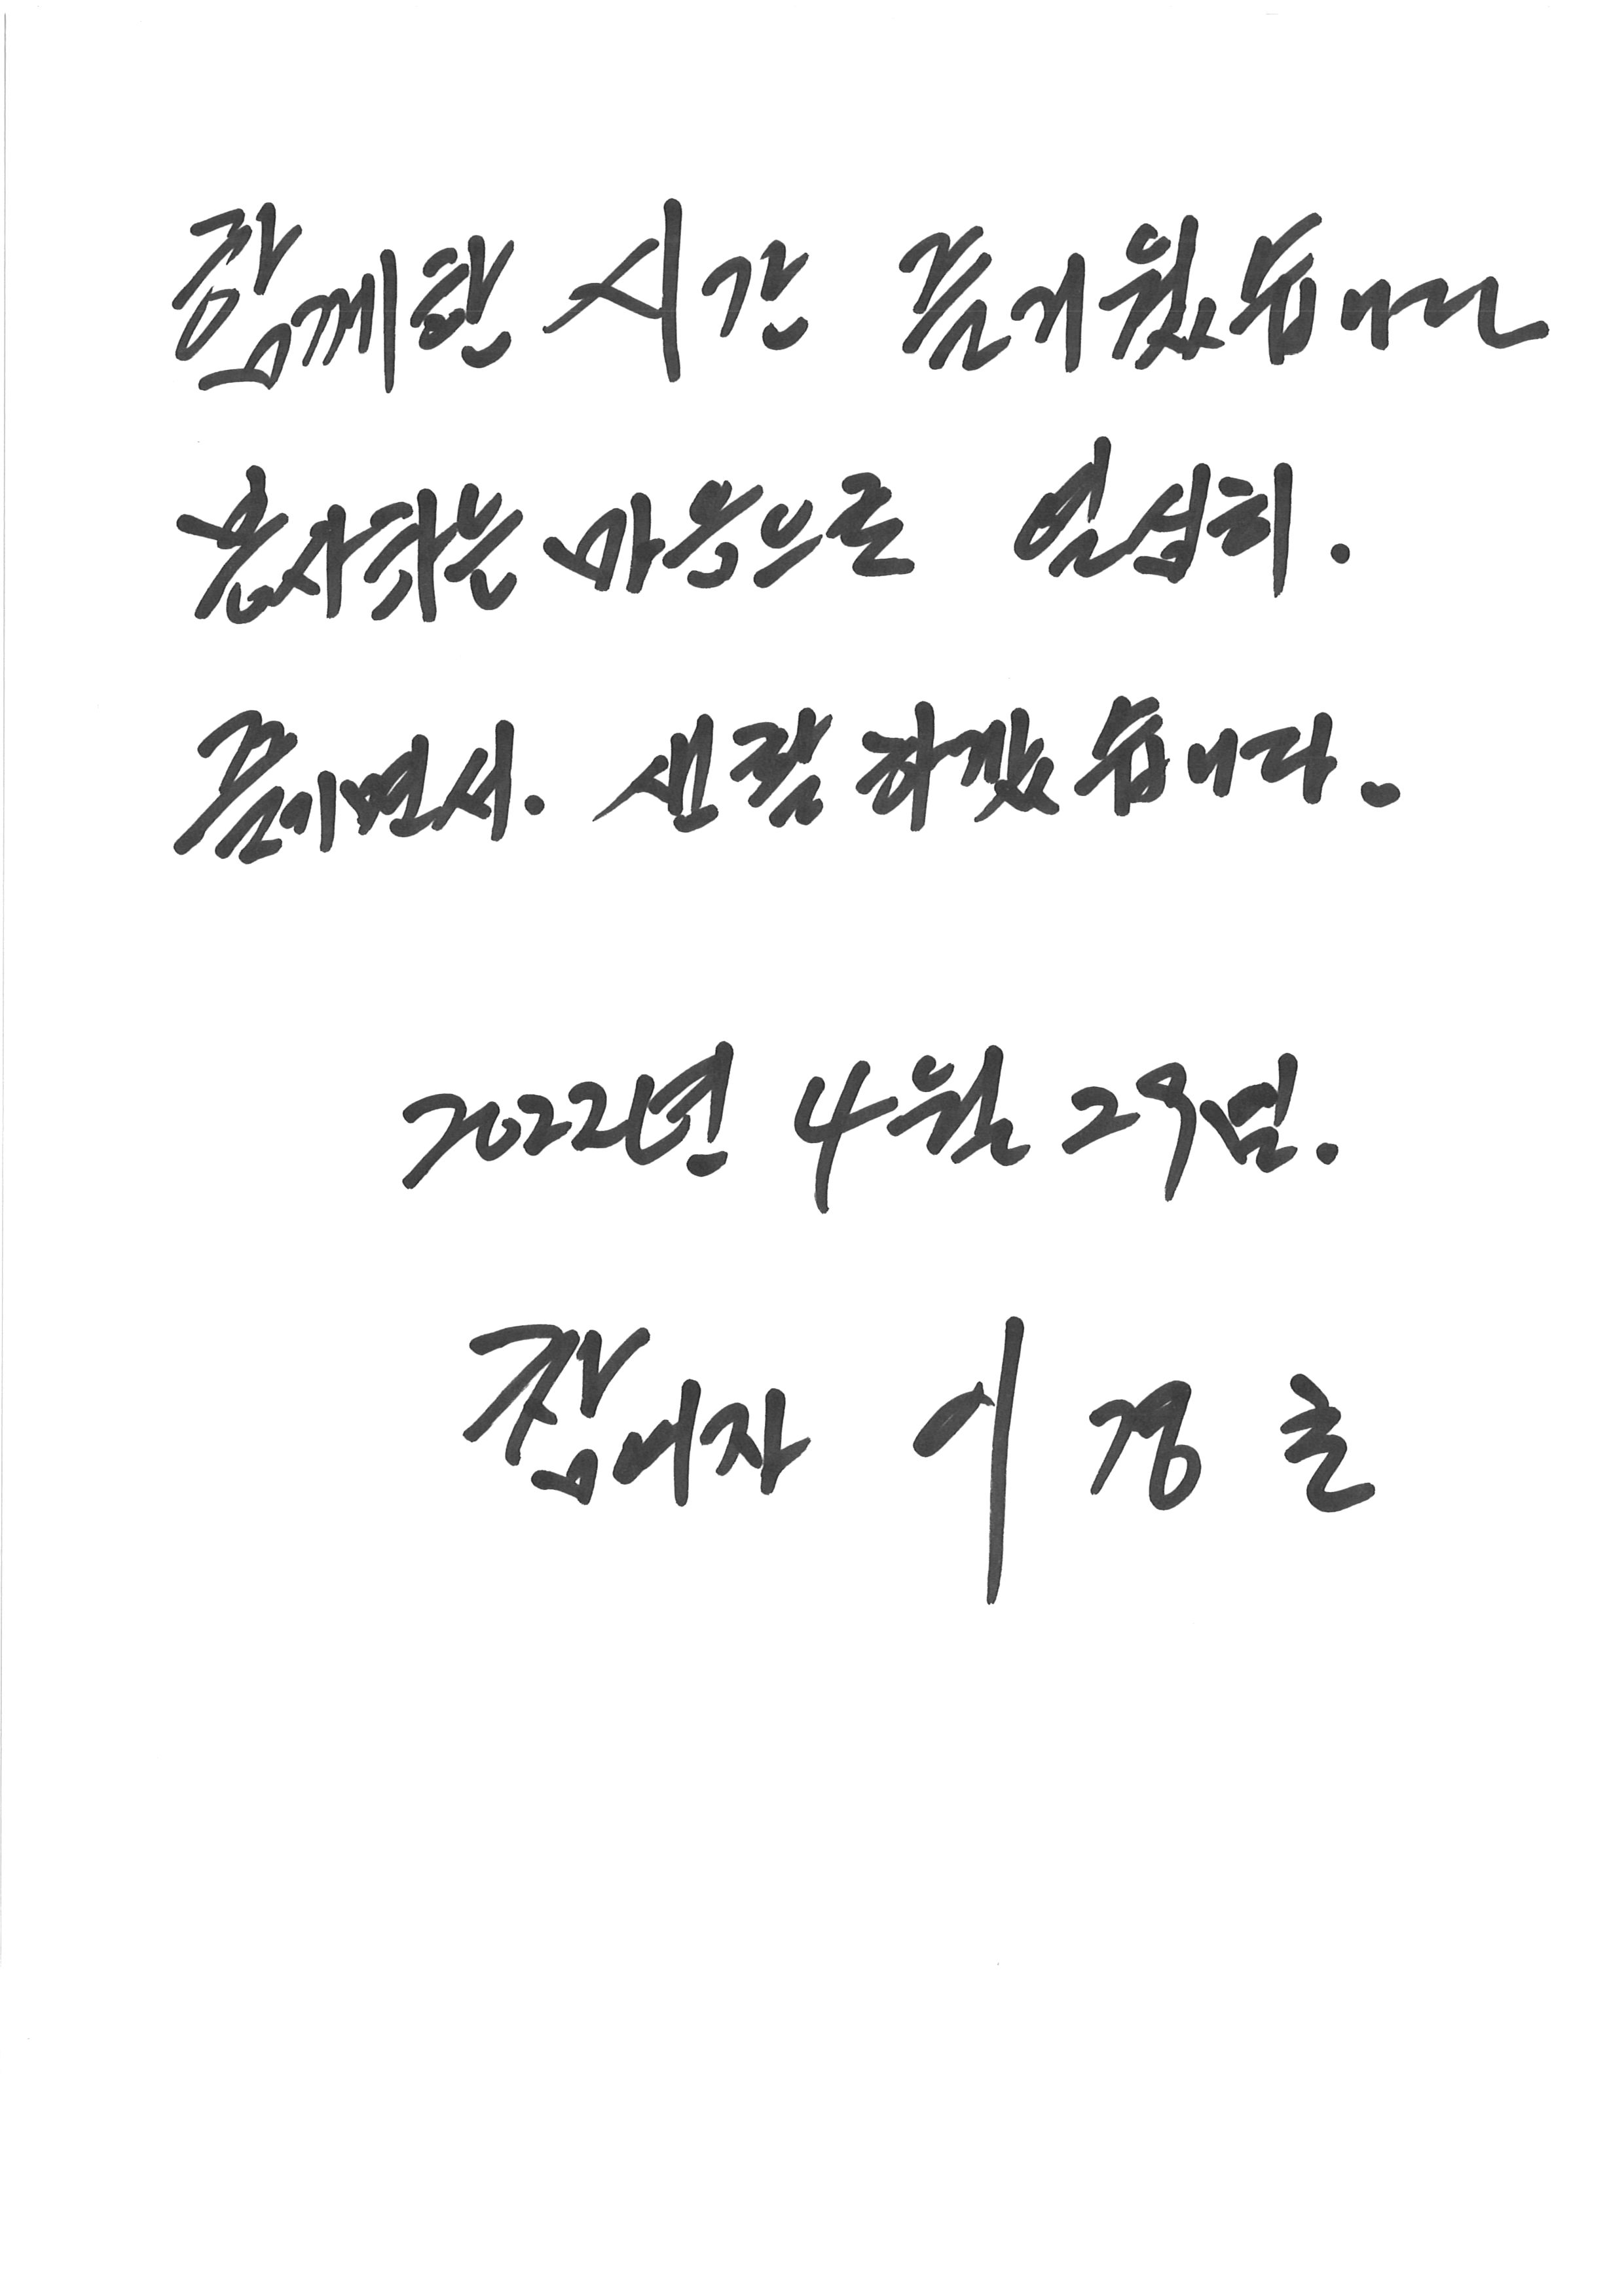 함께한 시간 즐거웠습니다
봉사하는 마음으로 열심히.
즐기면서. 생활 하겠습니다.
2022년 4월 29일.
참여자 이 경 훈